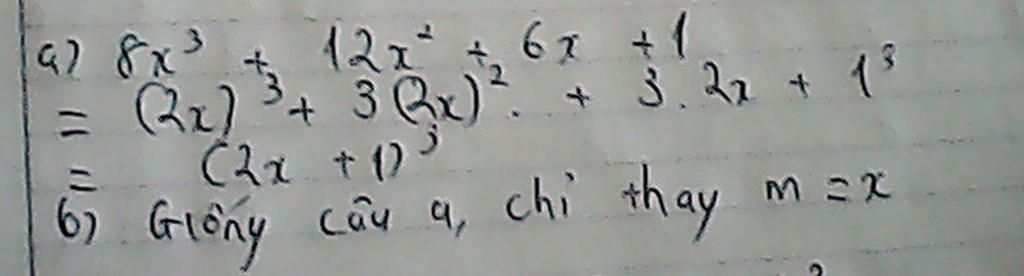 a) 8x³ + 12x² + 6x + 1
= (2x)³ + 3(2x)². + 3. 2x + 1³
= (2x + 1)³
b) Giống câu a, chỉ thay m = x